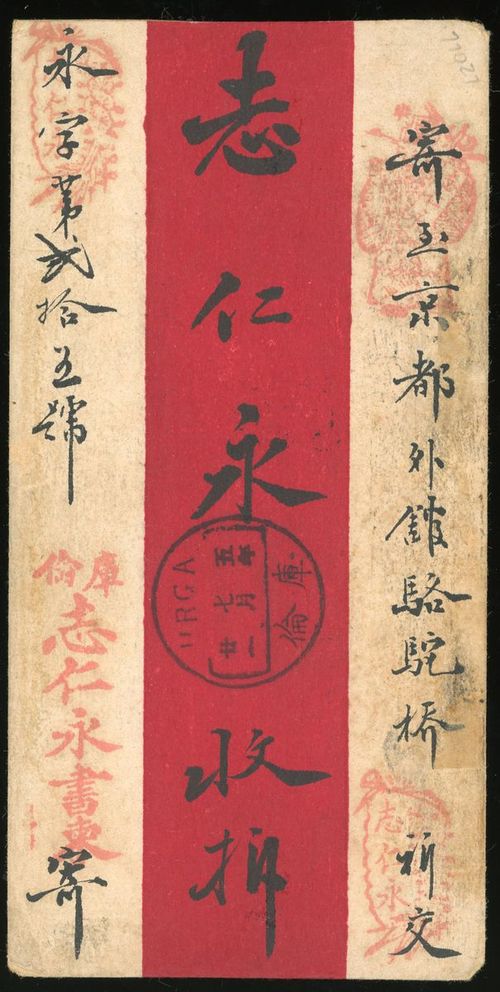 寄至京都外舘駱駝橋 祈交
志仁永收拆
永字第貳拾五號
庫倫
志仁永書柬
寄
URGA
庫倫
五年
七月
廿一
志仁永
11021